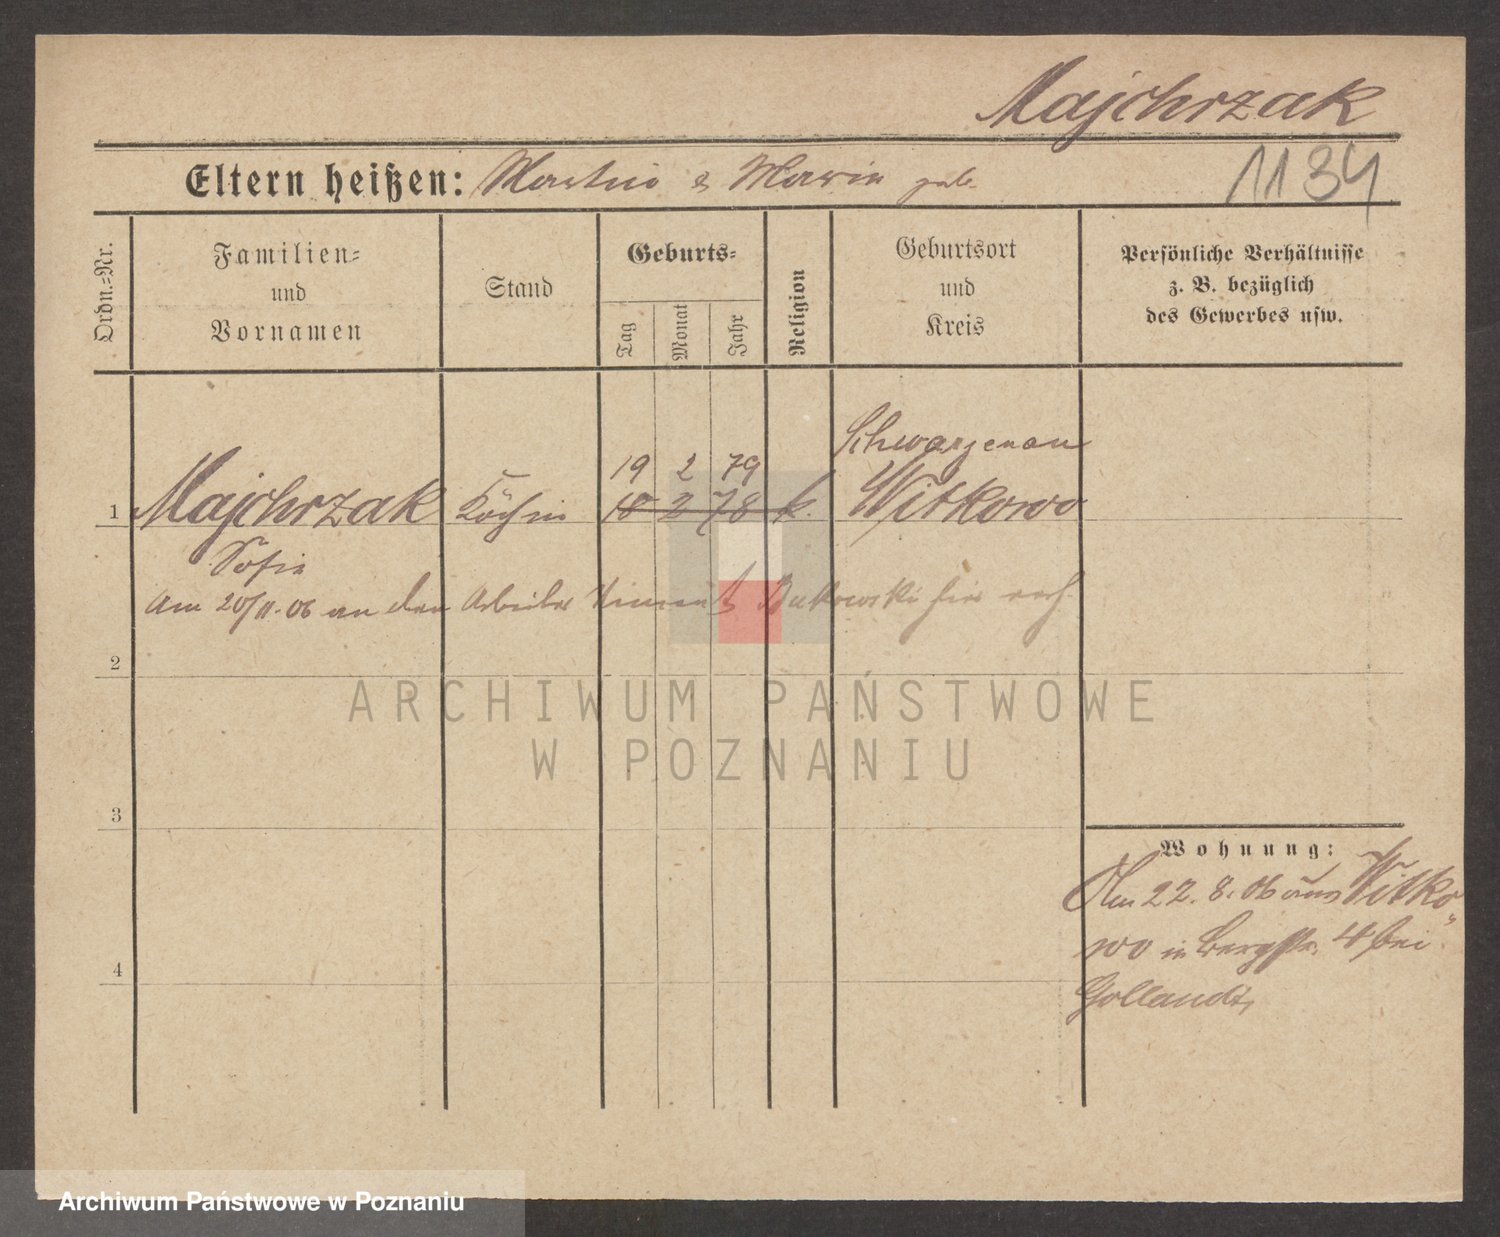 Majchrzak
1134
Eltern heißen: Martin & Marie geb.
Ordn.=Nr.
Familien=
und
Vornamen
Stand
Geburts=
Tag
Monat
Jahr
Religion
Geburtsort
und
Kreis
Persönliche Verhältnisse
z. B. bezüglich
des Gewerbes usw.
Schwarzenau
19 2 79
1 Majchrzak Köchin 10 2 78 k. Witkowo
Sofie
Am 20/11.06 an den Arbeiter Vincent Bukowski hier
2
3
4
Wohnung:
Am 22.8.06 aus Witko
wo in Bergstr. 4 bei
ARCHIWUM PAŃSTWOWE
W POZNANIU
Archiwum Państwowe w Poznaniu